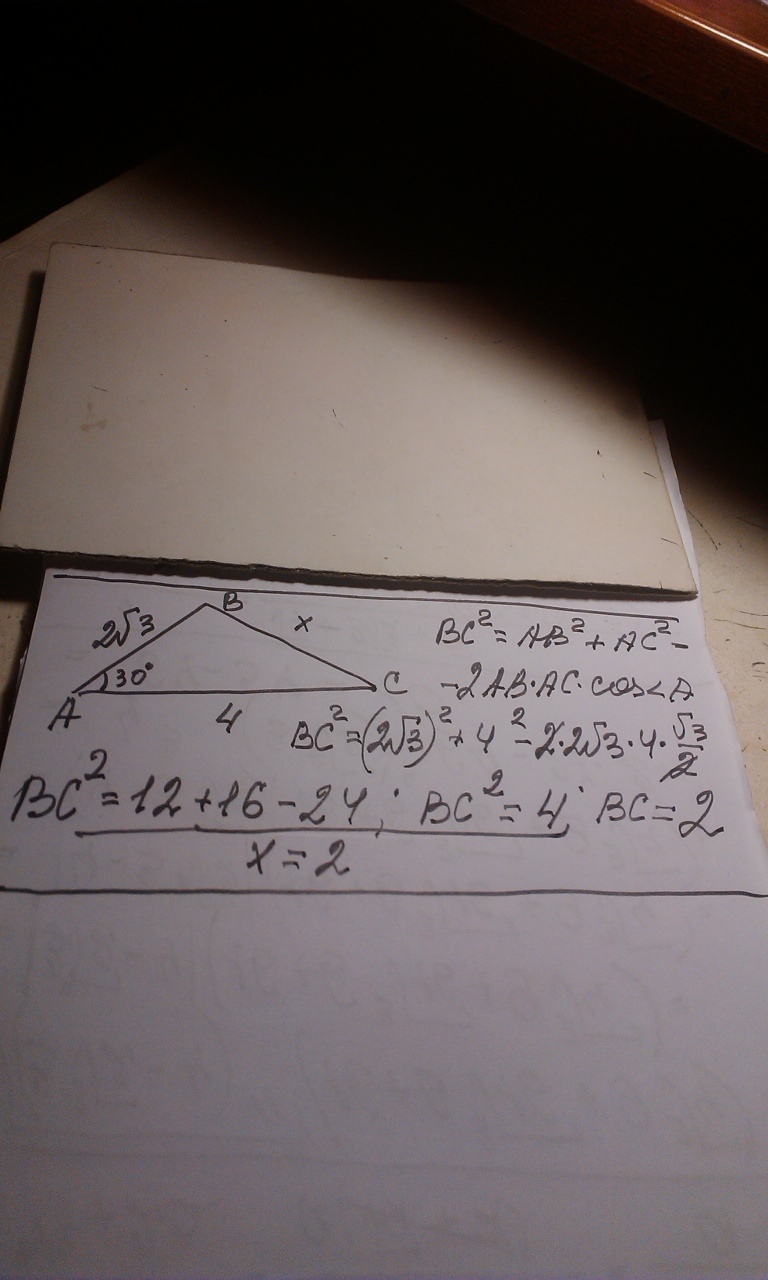 B
2√3 x BC² = AB² + AC² -
30° C -2AB·AC·cos∠A
A 4
BC² = (2√3)² + 4² - 2·2√3·4·√3/2
BC² = 12 + 16 - 24; BC² = 4; BC = 2
x = 2